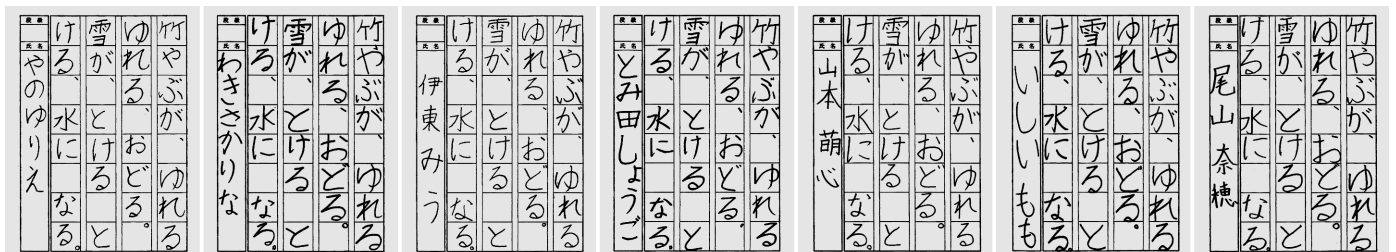 竹やぶが、ゆれる
ゆれる、おどる。
雪が、とける と
ける、水に なる。
段級
氏名
やのゆりえ
竹やぶが、ゆれる
ゆれる、おどる。
雪が、とける と
ける、水に なる。
段級
氏名
わきさかりな
竹やぶが、ゆれる
ゆれる、おどる。
雪が、とける と
ける、水に なる。
段級
氏名
伊東みう
竹やぶが、ゆれる
ゆれる、おどる。
雪が、とける と
ける、水に なる。
段級
氏名
とみ田しょうご
竹やぶが、ゆれる
ゆれる、おどる。
雪が、とける と
ける、水に なる。
段級
氏名
山本 萌心
竹やぶが、ゆれる
ゆれる、おどる。
雪が、とける と
ける、水に なる。
段級
氏名
いしいもも
竹やぶが、ゆれる
ゆれる、おどる。
雪が、とける と
ける、水に なる。
段級
氏名
尾山 奈穂